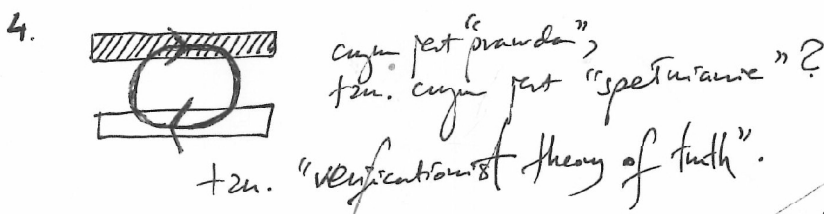 4.
czym jest "prawda",
tzn. czym jest "spełnianie"?
tzn. "verificationist theory of truth".